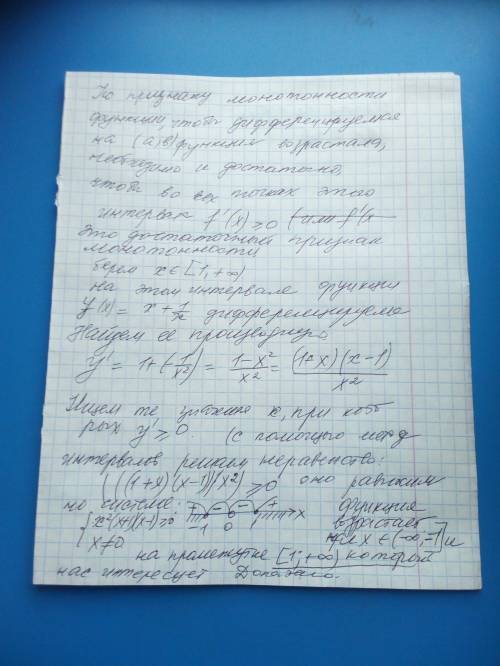 По признаку монотонности
функции, чтобы дифференцируемая
на (a,в) функция возрастала,
необходимо и достаточно,
чтобы во всех точках этого
интервала f'(x) ≥ 0 (или f'(x
Это достаточный признак
монотонности
берем x ∈ [1, +∞)
на этом интервале функции
y(x) = x + 1/x дифференцируема
Найдем её производную.
y' = 1 + (-1/x²) = 1-x²/x² = (1+x)(x-1)/x²
Ищем те значения x, при кото
рых y' ≥ 0. (с помощью метод
интервалов решим неравенство:
(((1+x)(x-1))/x²) ≥ 0 оно равносил
но системе: + - - + x функция
{x²(x+1)(x-1) ≥ 0 -1 0 возрастает
x ≠ 0 при x ∈ (-∞, -1] и
на промежутке [1; +∞) который
нас интересует Доказано.